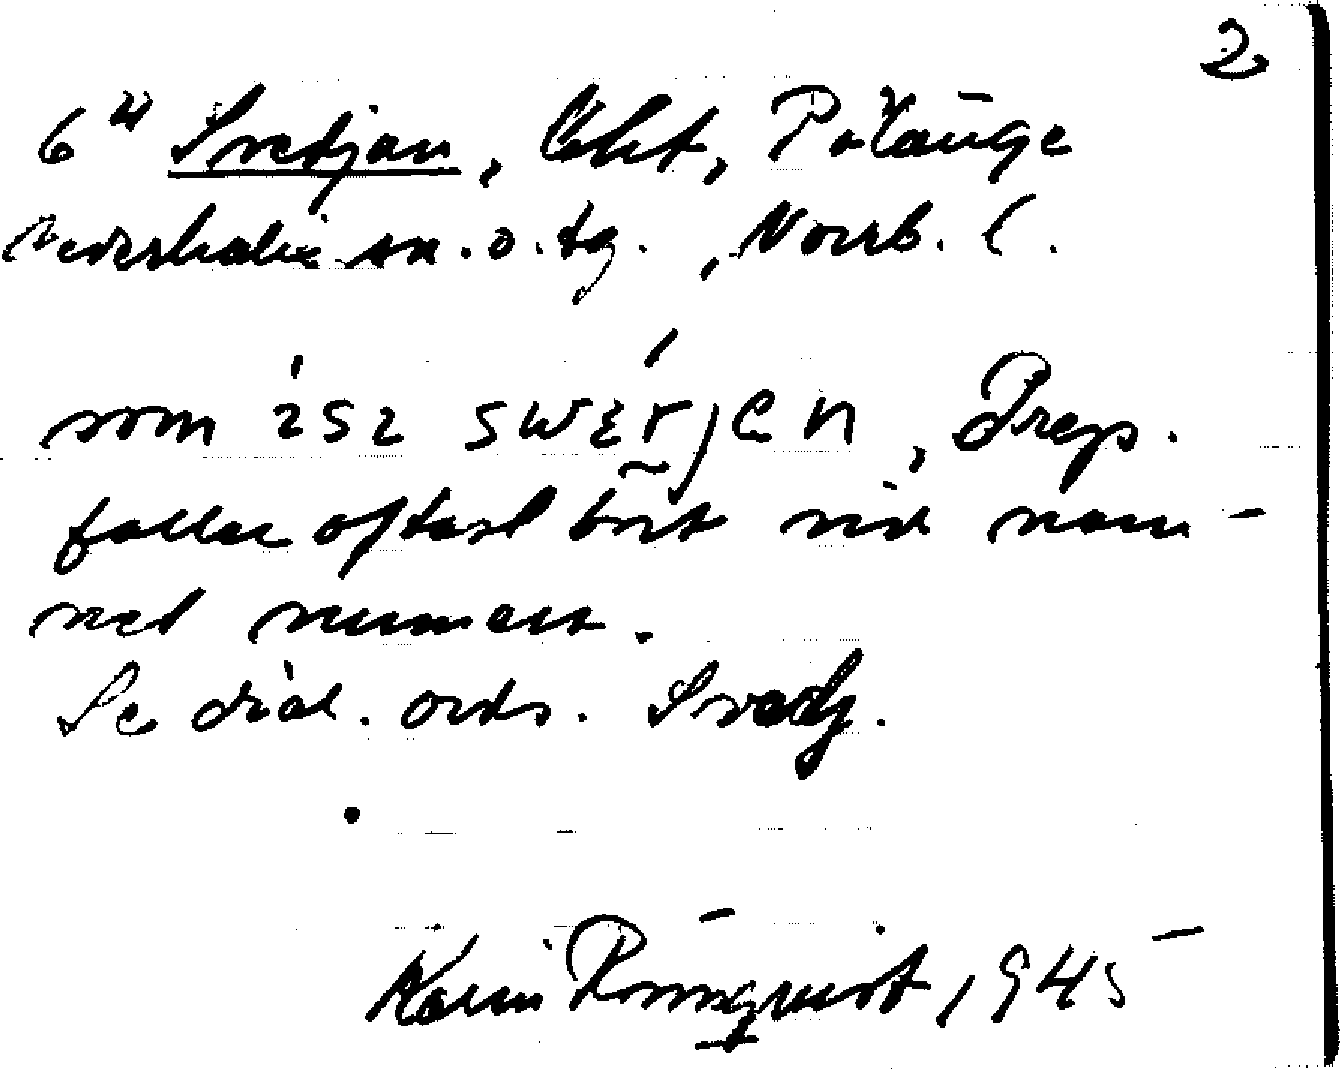 2
6" Svedjan, Åkt, Pålänge
Nederkalix sn. o. tg., Norrb. l.
som
, Prep.
faller oftast bort vid nam-
net numera.
Se dial. ords. Svedj.
Karin Rönnqvist, 1945